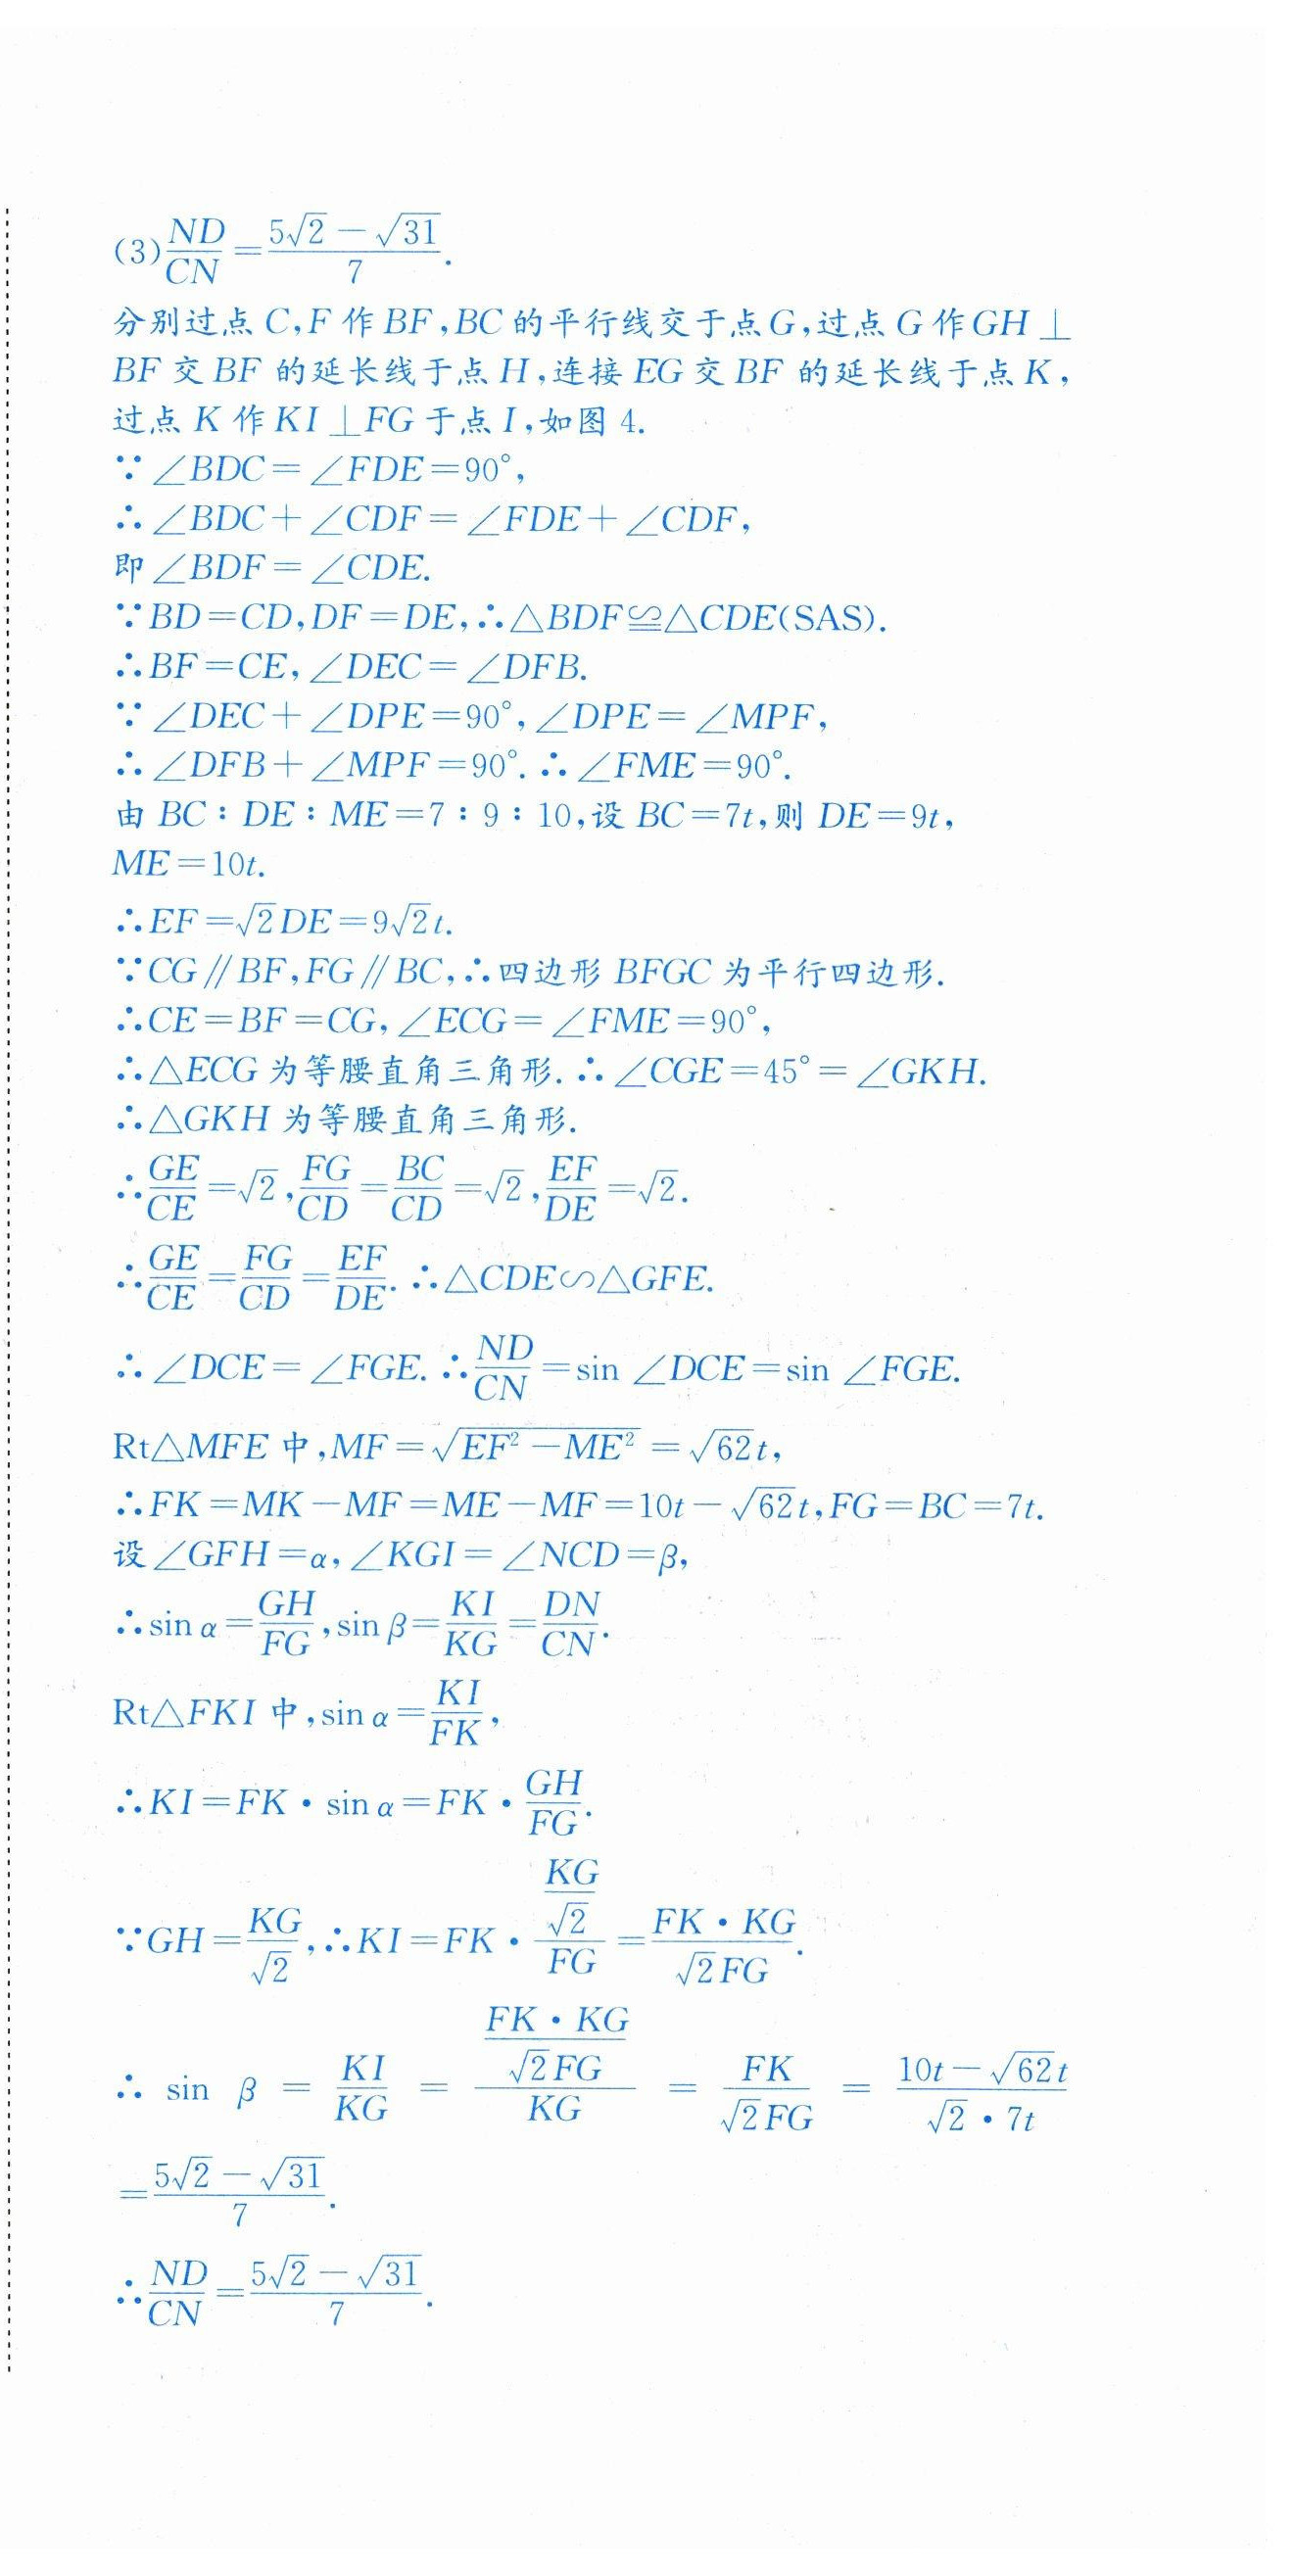 (3)ND/CN=(5√2-√31)/7.
分别过点C,F作BF,BC的平行线交于点G,过点G作GH⊥
BF交BF的延长线于点H,连接EG交BF的延长线于点K,
过点K作KI⊥FG于点I,如图4.
∵∠BDC=∠FDE=90°,
∴∠BDC+∠CDF=∠FDE+∠CDF,
即∠BDF=∠CDE.
∵BD=CD,DF=DE,∴△BDF≌△CDE(SAS).
∴BF=CE,∠DEC=∠DFB.
∵∠DEC+∠DPE=90°,∠DPE=∠MPF,
∴∠DFB+∠MPF=90°.∴∠FME=90°.
由BC∶DE∶ME=7∶9∶10,设BC=7t,则DE=9t,
ME=10t.
∴EF=√2DE=9√2t.
∵CG∥BF,FG∥BC,∴四边形BFGC为平行四边形.
∴CE=BF=CG,∠ECG=∠FME=90°,
∴△ECG为等腰直角三角形.∴∠CGE=45°=∠GKH.
∴△GKH为等腰直角三角形.
∴GE/CE=√2,FG/CD=BC/CD=√2,EF/DE=√2.
∴GE/CE=FG/CD=EF/DE.∴△CDE∽△GFE.
∴∠DCE=∠FGE.∴ND/CN=sin∠DCE=sin∠FGE.
Rt△MFE中,MF=√(EF²-ME²)=√62t,
∴FK=MK-MF=ME-MF=10t-√62t,FG=BC=7t.
设∠GFH=α,∠KGI=∠NCD=β,
∴sin α=GH/FG,sin β=KI/KG=DN/CN.
Rt△FKI中,sin α=KI/FK,
∴KI=FK·sin α=FK·GH/FG.
∵GH=KG/√2,∴KI=FK·(KG/√2)/FG=(FK·KG)/(√2FG).
∴sin β=KI/KG=((FK·KG)/(√2FG))/KG=FK/(√2FG)=(10t-√62t)/(√2·7t)
=(5√2-√31)/7.
∴ND/CN=(5√2-√31)/7.